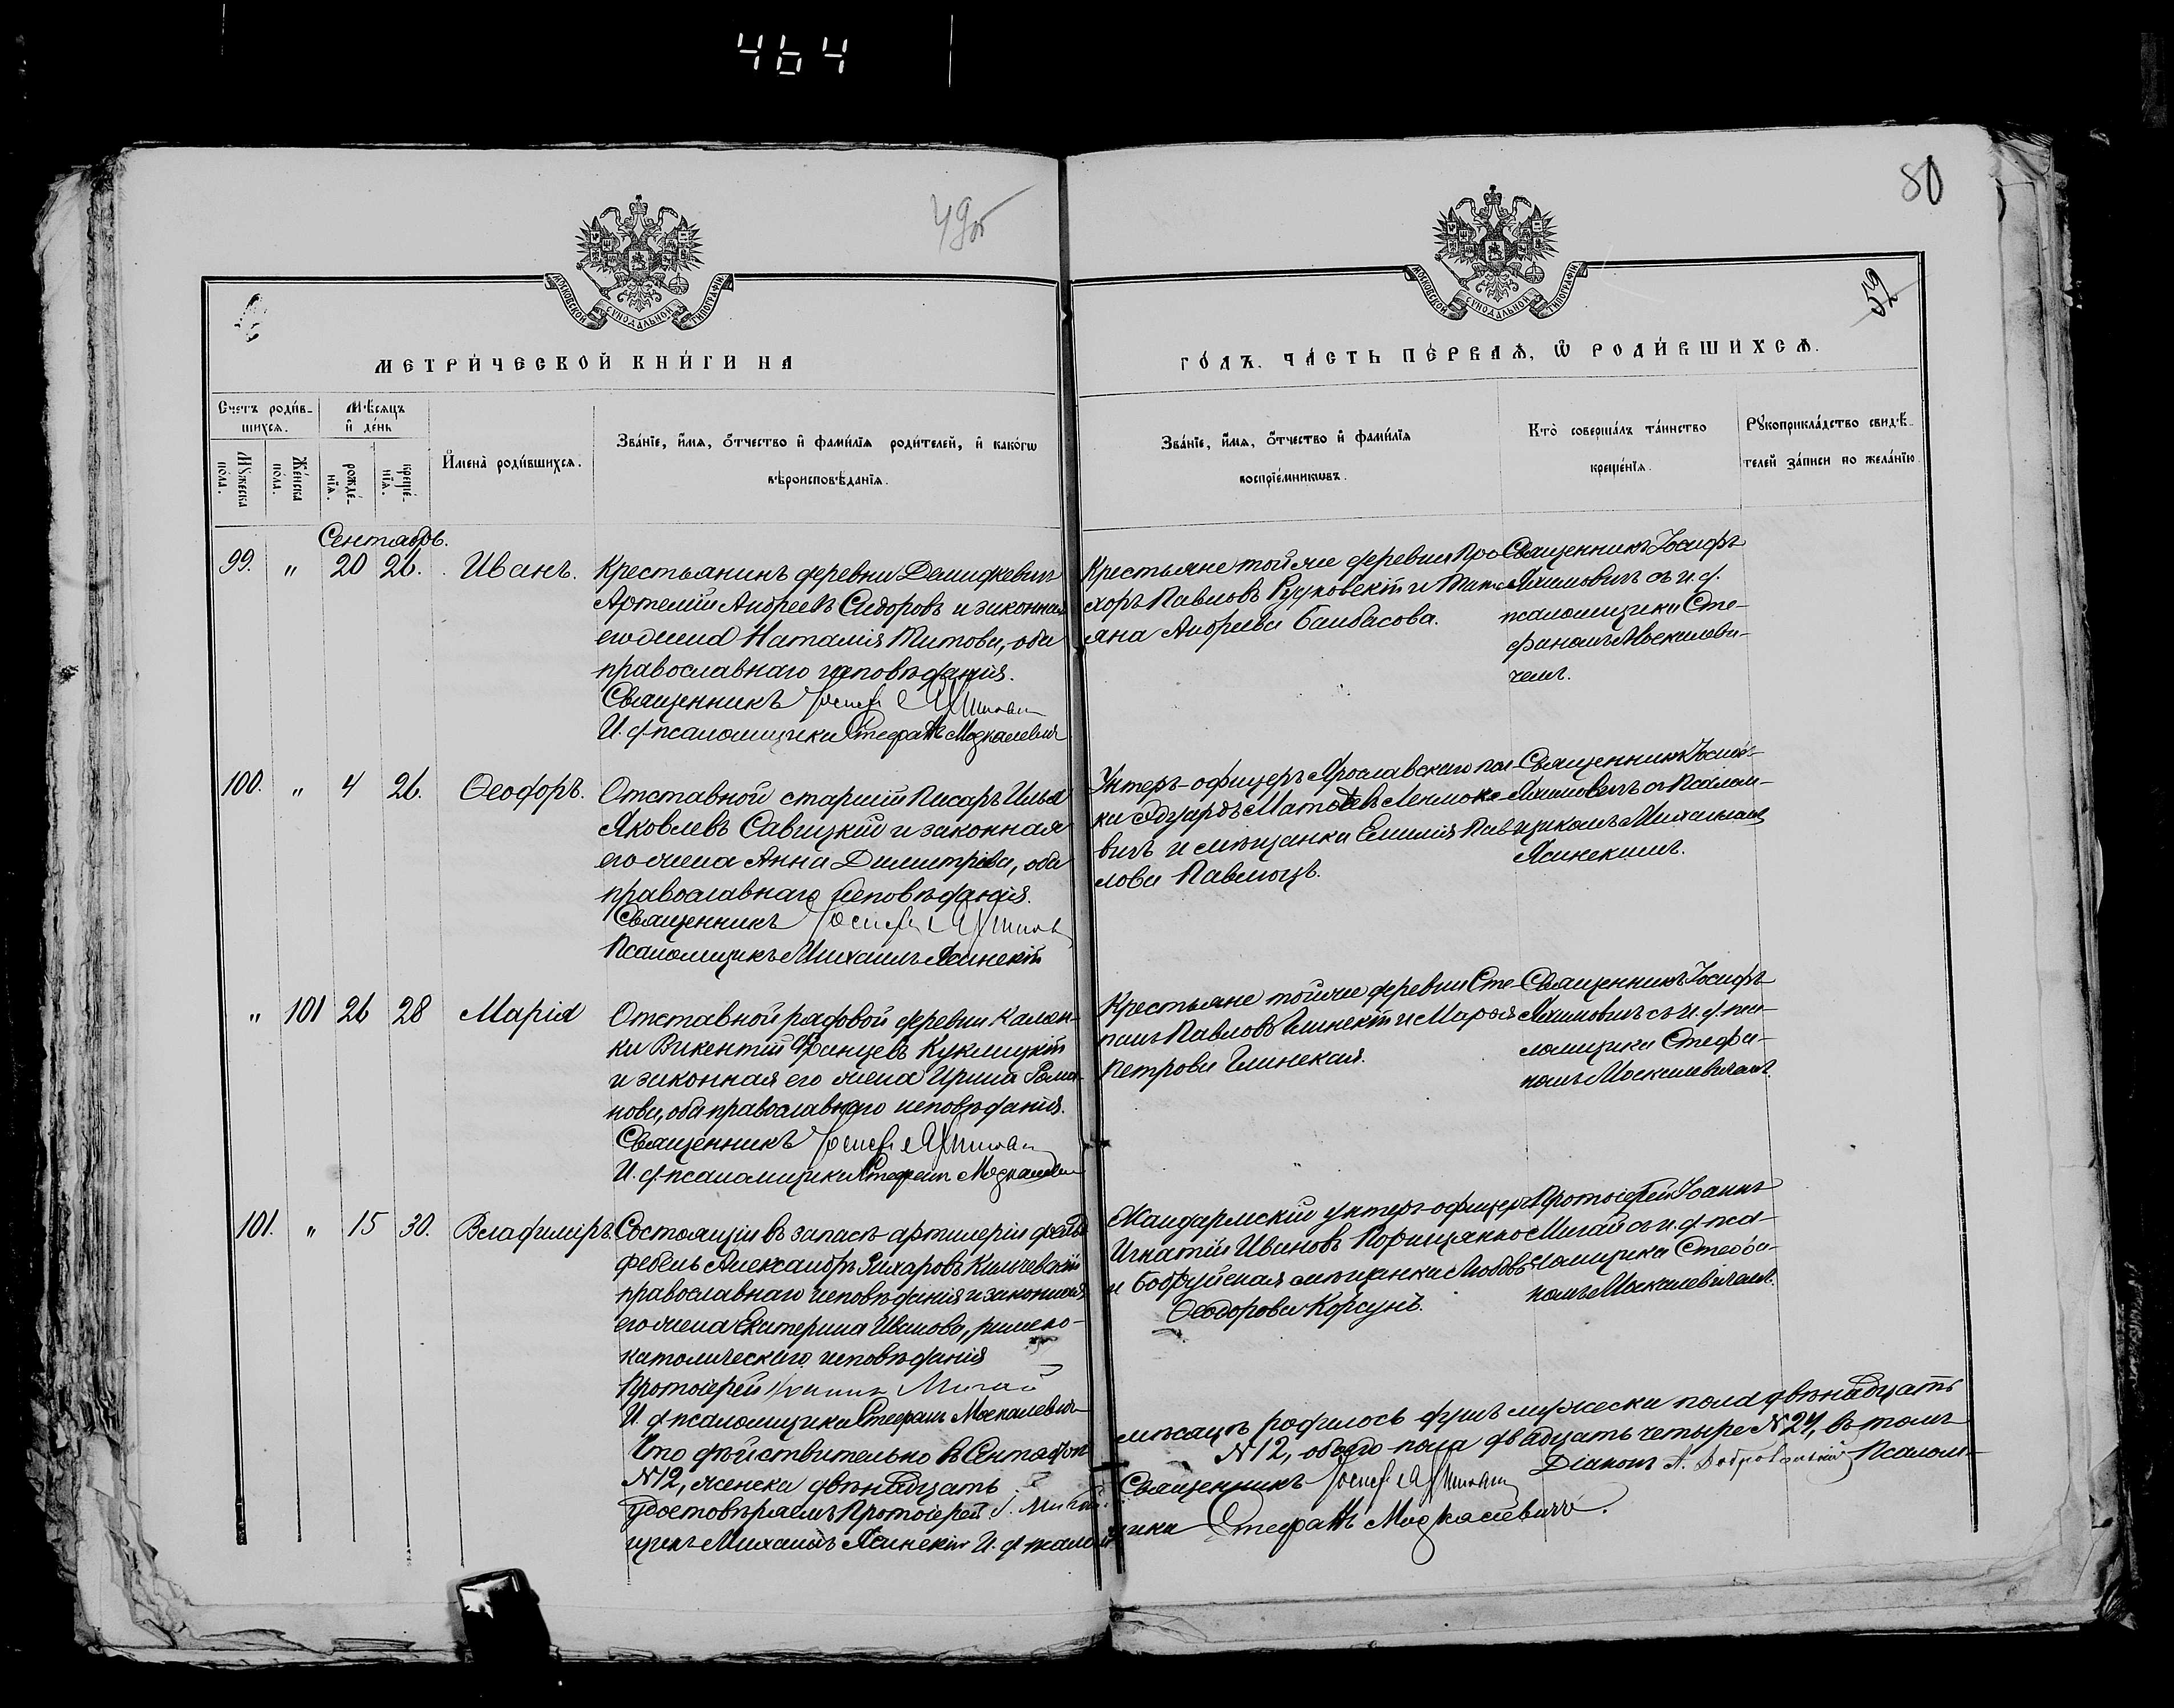 464
79об
80
МОСКОВСКОЙ СУНОДАЛЬНОЙ ТИПОГРАФІИ
МОСКОВСКОЙ СУНОДАЛЬНОЙ ТИПОГРАФІИ
52
МЕТРИ́ЧЕСКОЙ КНИ́ГИ НА
ГО́ДЪ. ЧА́СТЬ ПЕ́РВАѦ, Ѡ҆ РОДИ́ВШИХСѦ.
Счетъ роди́в-
шихсѧ.
Мѣ́сѧцъ
и҆ де́нь
Мꙋ́жеска
по́ла.
Же́нска
по́ла.
рожде́-
нїѧ.
креще́-
нїѧ.
И҆мена̀ роди́вшихсѧ.
Зва́нїе, и҆́мѧ, ѻ҆́тчество и҆ фами́лїѧ роди́телей, и҆ како́гѡ
вѣроисповѣ́данїѧ.
Зва́нїе, и҆́мѧ, ѻ҆́тчество и҆ фами́лїѧ
воспрїе́мникѡвъ.
Кто̀ соверша́лъ та́инство
креще́нїѧ.
Рꙋкоприкла́дство свидѣ́-
телей за́писи по жела́нїю
Сентябрь.
99. " 20 26. Иванъ.
Крестьянинъ деревни
Артемій Андреевъ Сидоровъ и законная
его жена Наталія Титова, оба
православнаго исповѣданія.
Священникъ Іосифъ
И. д. псаломщика Стефанъ Москалевичъ
Крестьяне той же деревни Про-
хоръ Павловъ и Тать-
яна Андреева
Священникъ Іосифъ
съ и. д.
псаломщика Сте-
фаномъ Москалеви-
чемъ.
100. " 4 26. Ѳеодоръ.
Отставной старшій писарь Илья
Яковлевъ Савицкій и законная
его жена Анна Димитріева, оба
православнаго исповѣданія.
Священникъ Іосифъ
Псаломщикъ Михаилъ Ясинскій
Унтеръ-офицеръ Ярославскаго пол-
ка Эдуардъ
вичъ и мѣщанка Емилія Пав-
лова Павлюцъ.
Священникъ Іосифъ
съ псалом-
щикомъ Михаиломъ
Ясинскимъ.
" 101 26 28 Марія
Отставной рядовой деревни
Викентій Францевъ Куклицкій
и законная его жена Ирина Рома-
нова, оба православнаго исповѣданія.
Священникъ Іосифъ
И. д. псаломщика Стефанъ Москалевичъ
Крестьяне той же деревни Сте-
панъ Павловъ Глинскій и Марья
Петрова Глинская.
Священникъ Іосифъ
съ и. д. пса-
ломщика Стефа-
номъ Москалевичемъ.
101. " 15 30. Владиміръ.
Состоящій въ запасѣ артилеріи фельд-
фебель Александръ Захаровъ
православнаго исповѣданія и законная
его жена Екатерина Иванова, римско-
католическаго исповѣданія
Протоіерей Іоаннъ Мигай
И. д. псаломщика Стефанъ Москалевичъ
Жандармскій унтеръ-офицеръ
Игнатій Ивановъ
и Бобруйская мѣщанка Любовь
Ѳеодорова Корсунъ.
Протоіерей Іоаннъ
Мигай съ и. д. пса-
ломщика Стефа-
номъ Москалевичемъ.
Что дѣйствительно въ Сентябрѣ мѣсяцѣ родилось душъ мужеска пола двѣнадцать
N12, женска двѣнадцать N12, обоего пола двадцать четыре N24, въ томъ
удостовѣряемъ Протоіерей І. Мигай. Священникъ Іосифъ Діаконъ А. Добровольскій Псалом-
щикъ Михаилъ Ясинскій И. д. псаломщика Стефанъ Москалевичъ.